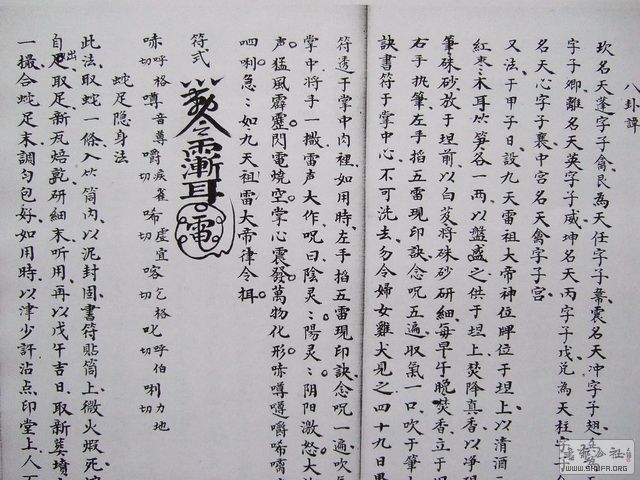 八卦諱
坎名天蓬字子禽艮為天任字子葉震名天冲字子翹
字子卿離名天英字子威坤名天丙字子戌兌為天柱字子
名天心字子襄中宮名天禽字子宮
又法于甲子日設九天雷祖大帝神位牌位于坦上以清酒二
紅枣木耳竹笋各一两以盤盛之供于坦上焚降真香以净
筆硃砂放于坦前以白芨将硃砂研細每早午晚焚香立于
右手执筆左手掐五雷現印訣念呪五遍取氣一口吹于筆
訣書符于掌中心不可洗去勿令婦女雞犬見之四十九日
符透于掌中肉裡如用時左手掐五雷現印訣念呪一遍吹
掌中将手一撒雷声大作呪曰陰灵々陽灵々阴阳激怒大
声猛風霹靂閃電燒空掌心震發萬物化形
呬唎急々如九天祖雷大帝律令揖
符式
蛇足隐身法
此法取蛇一條入竹筒内以泥封固書符貼筒上微火煅死
自出足取足新瓦焙乾研細末听用再以戊午吉日取新葬墳
一撮合蛇足末調匀包好如用時以津少許沾点印堂上人
WWW.SHUFA.ORG